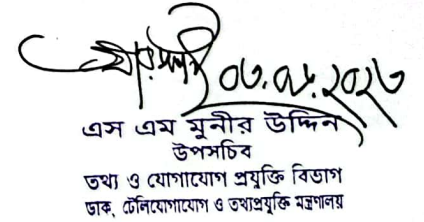 ০৩.০৮.২০২৩
এস এম মুনীর উদ্দিন
উপসচিব
তথ্য ও যোগাযোগ প্রযুক্তি বিভাগ
ডাক, টেলিযোগাযোগ ও তথ্যপ্রযুক্তি মন্ত্রণালয়